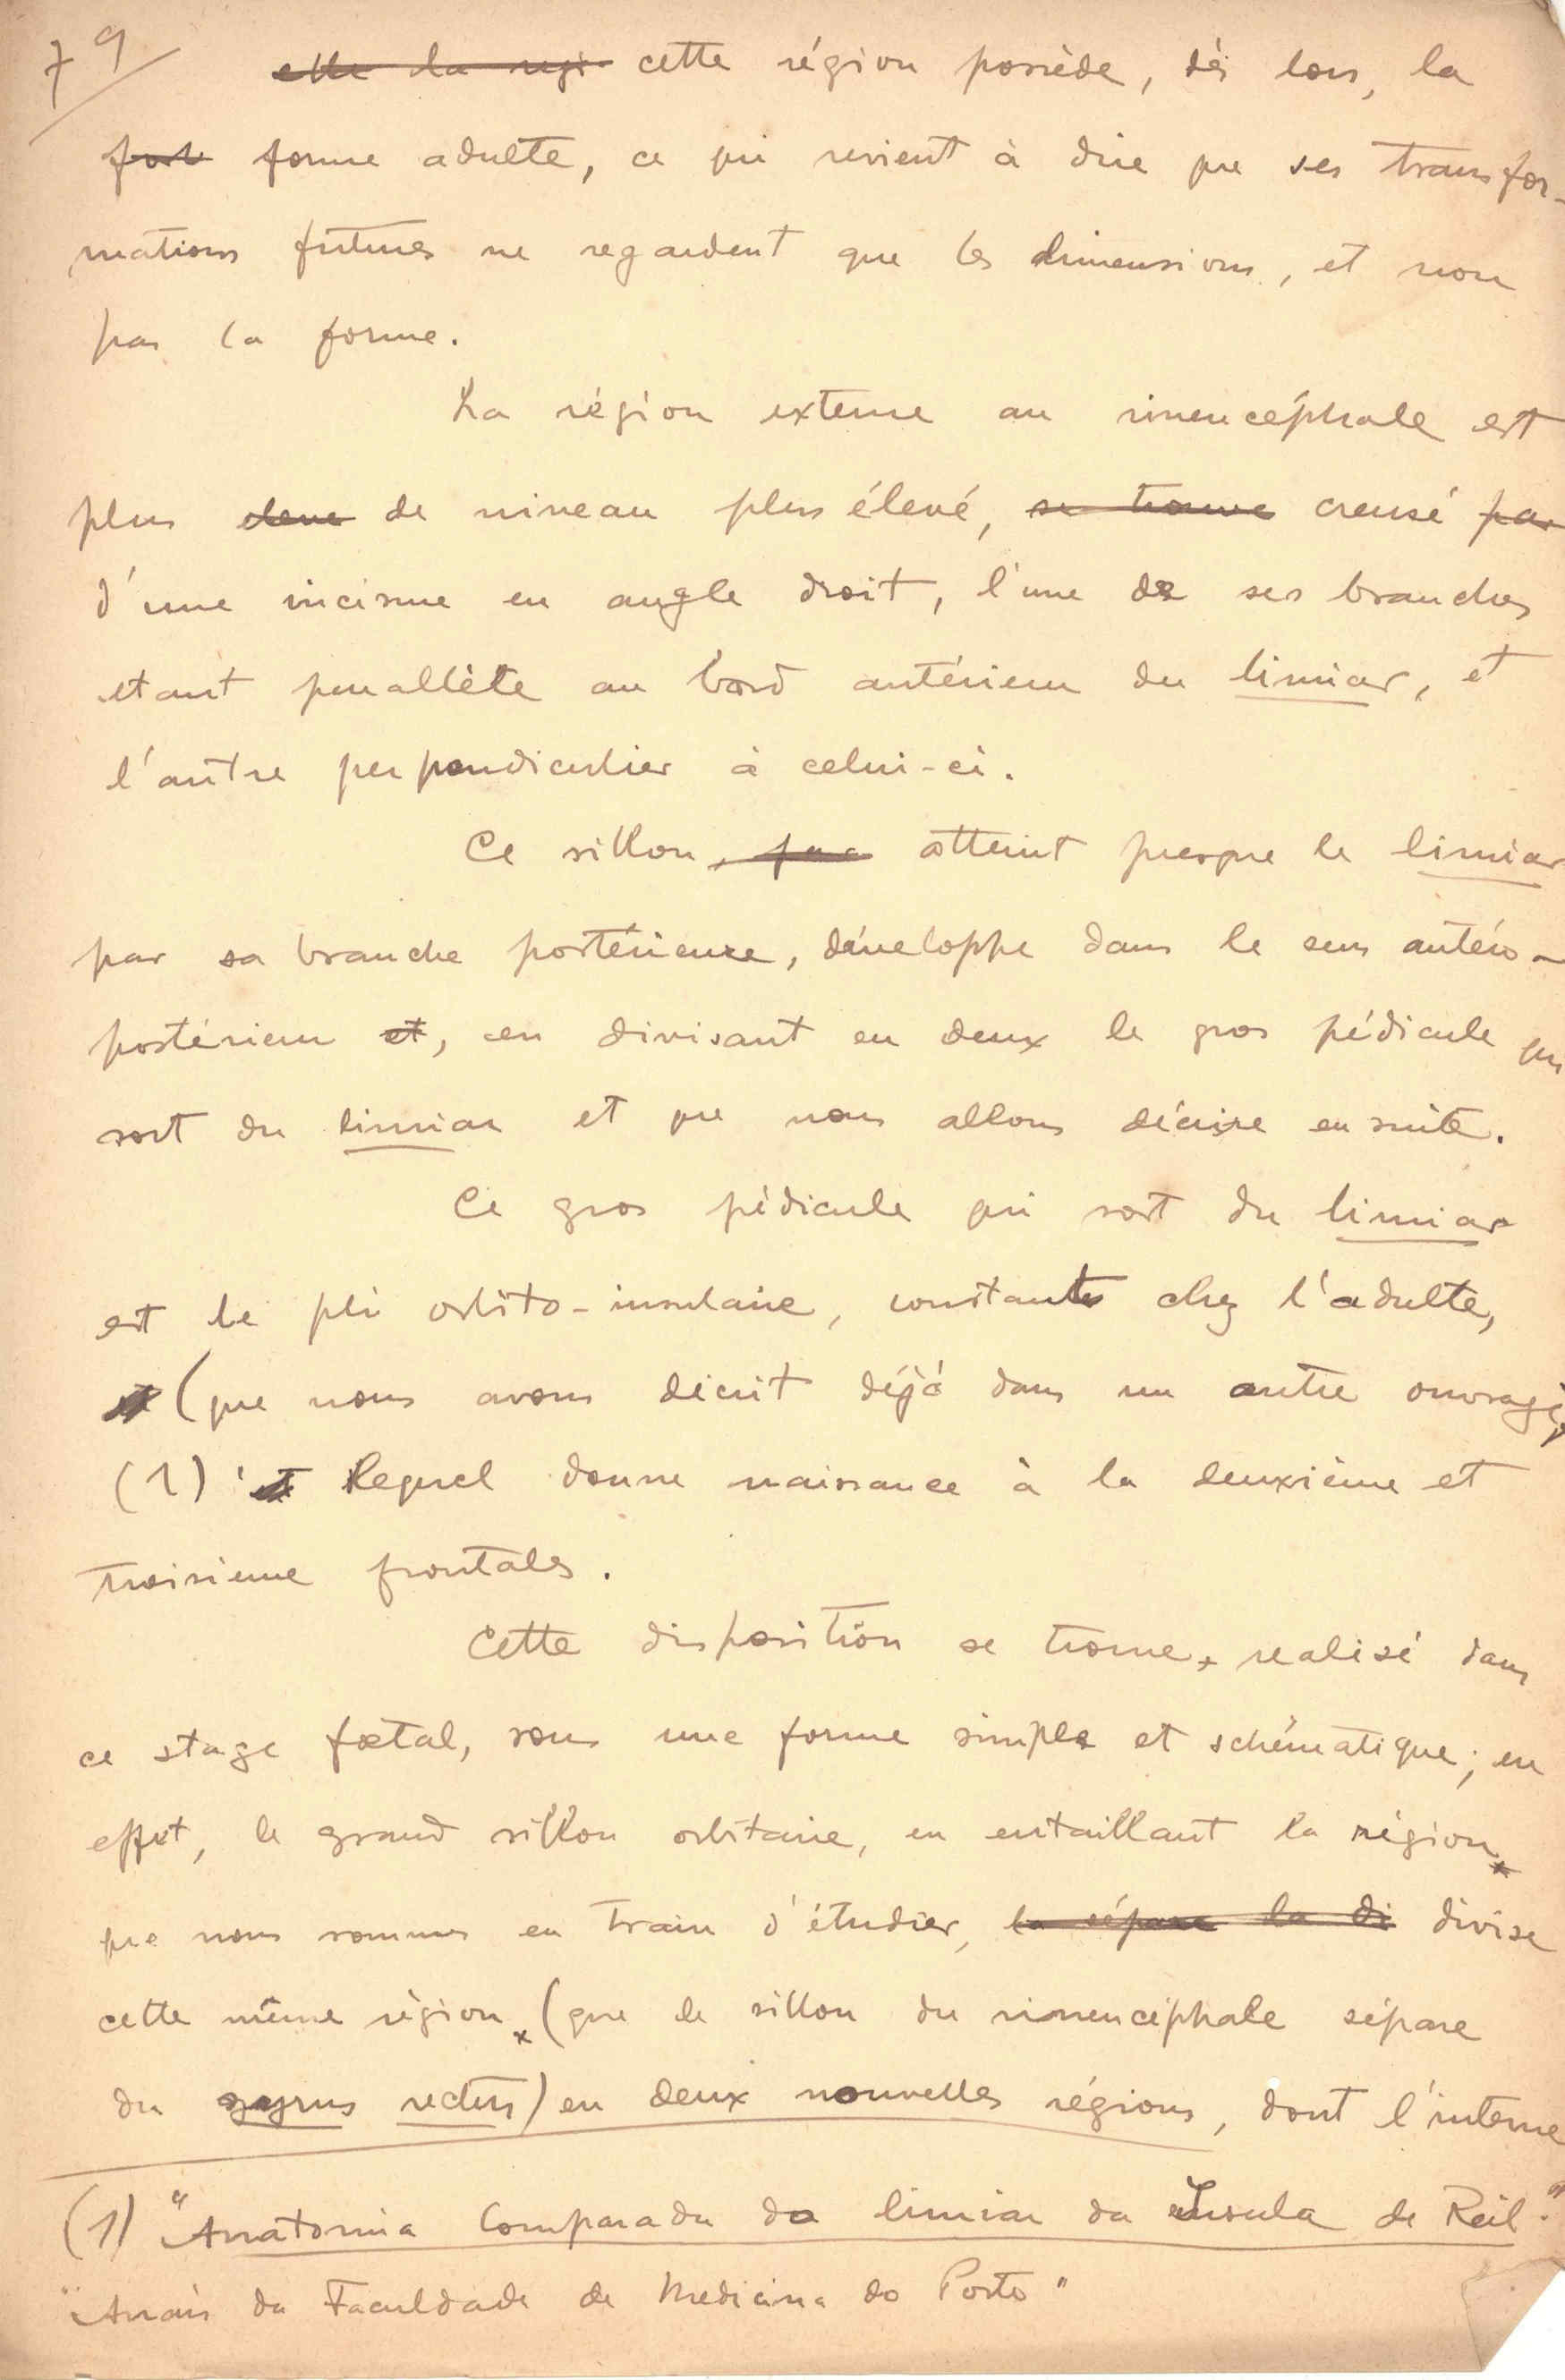 79
elle la regi cette région possède, dès lors, la
fort forme adulte, ce qui revient à dire que ses transfor-
mations futures ne regardent que les dimensions, et non
pas la forme.
La région externe au rinencéphale est
plus eleve de niveau plus élevé, se trouve creusé par
d'une incisure en angle droit, l'une de ses branches
etant parallèle au bord antérieur du limiar, et
l'autre perpendiculier à celui-ci.
Ce sillon, atteint presque le limiar
par sa branche postérieure, développe dans le sens antéro-
postérieur et, en divisant en deux le gros pédicule qui
sort du limiar et que nous allons décrire en suite.
Ce gros pédicule qui sort du limiar
est le pli orbito-insulaire, constante chez l'adulte,
et (que nous avons décrit déjà dans un autre ouvrage,
(1) et lequel donne naissance à la deuxième et
troisieme frontales.
Cette disposition se trouve, realisé dans
ce stage fœtal, sous une forme simple et schématique; en
effet, le grand sillon orbitaire, en entaillant la région
que nous sommes en train d'étudier, la sépare la di divise
cette même région (que le sillon du rinencéphale sépare
du gyrus rectus) en deux nouvelles régions, dont l'interne
(1) "Anatomia Comparada do limiar da Insula de Reil."
"Anais da Faculdade de Medicina do Porto"